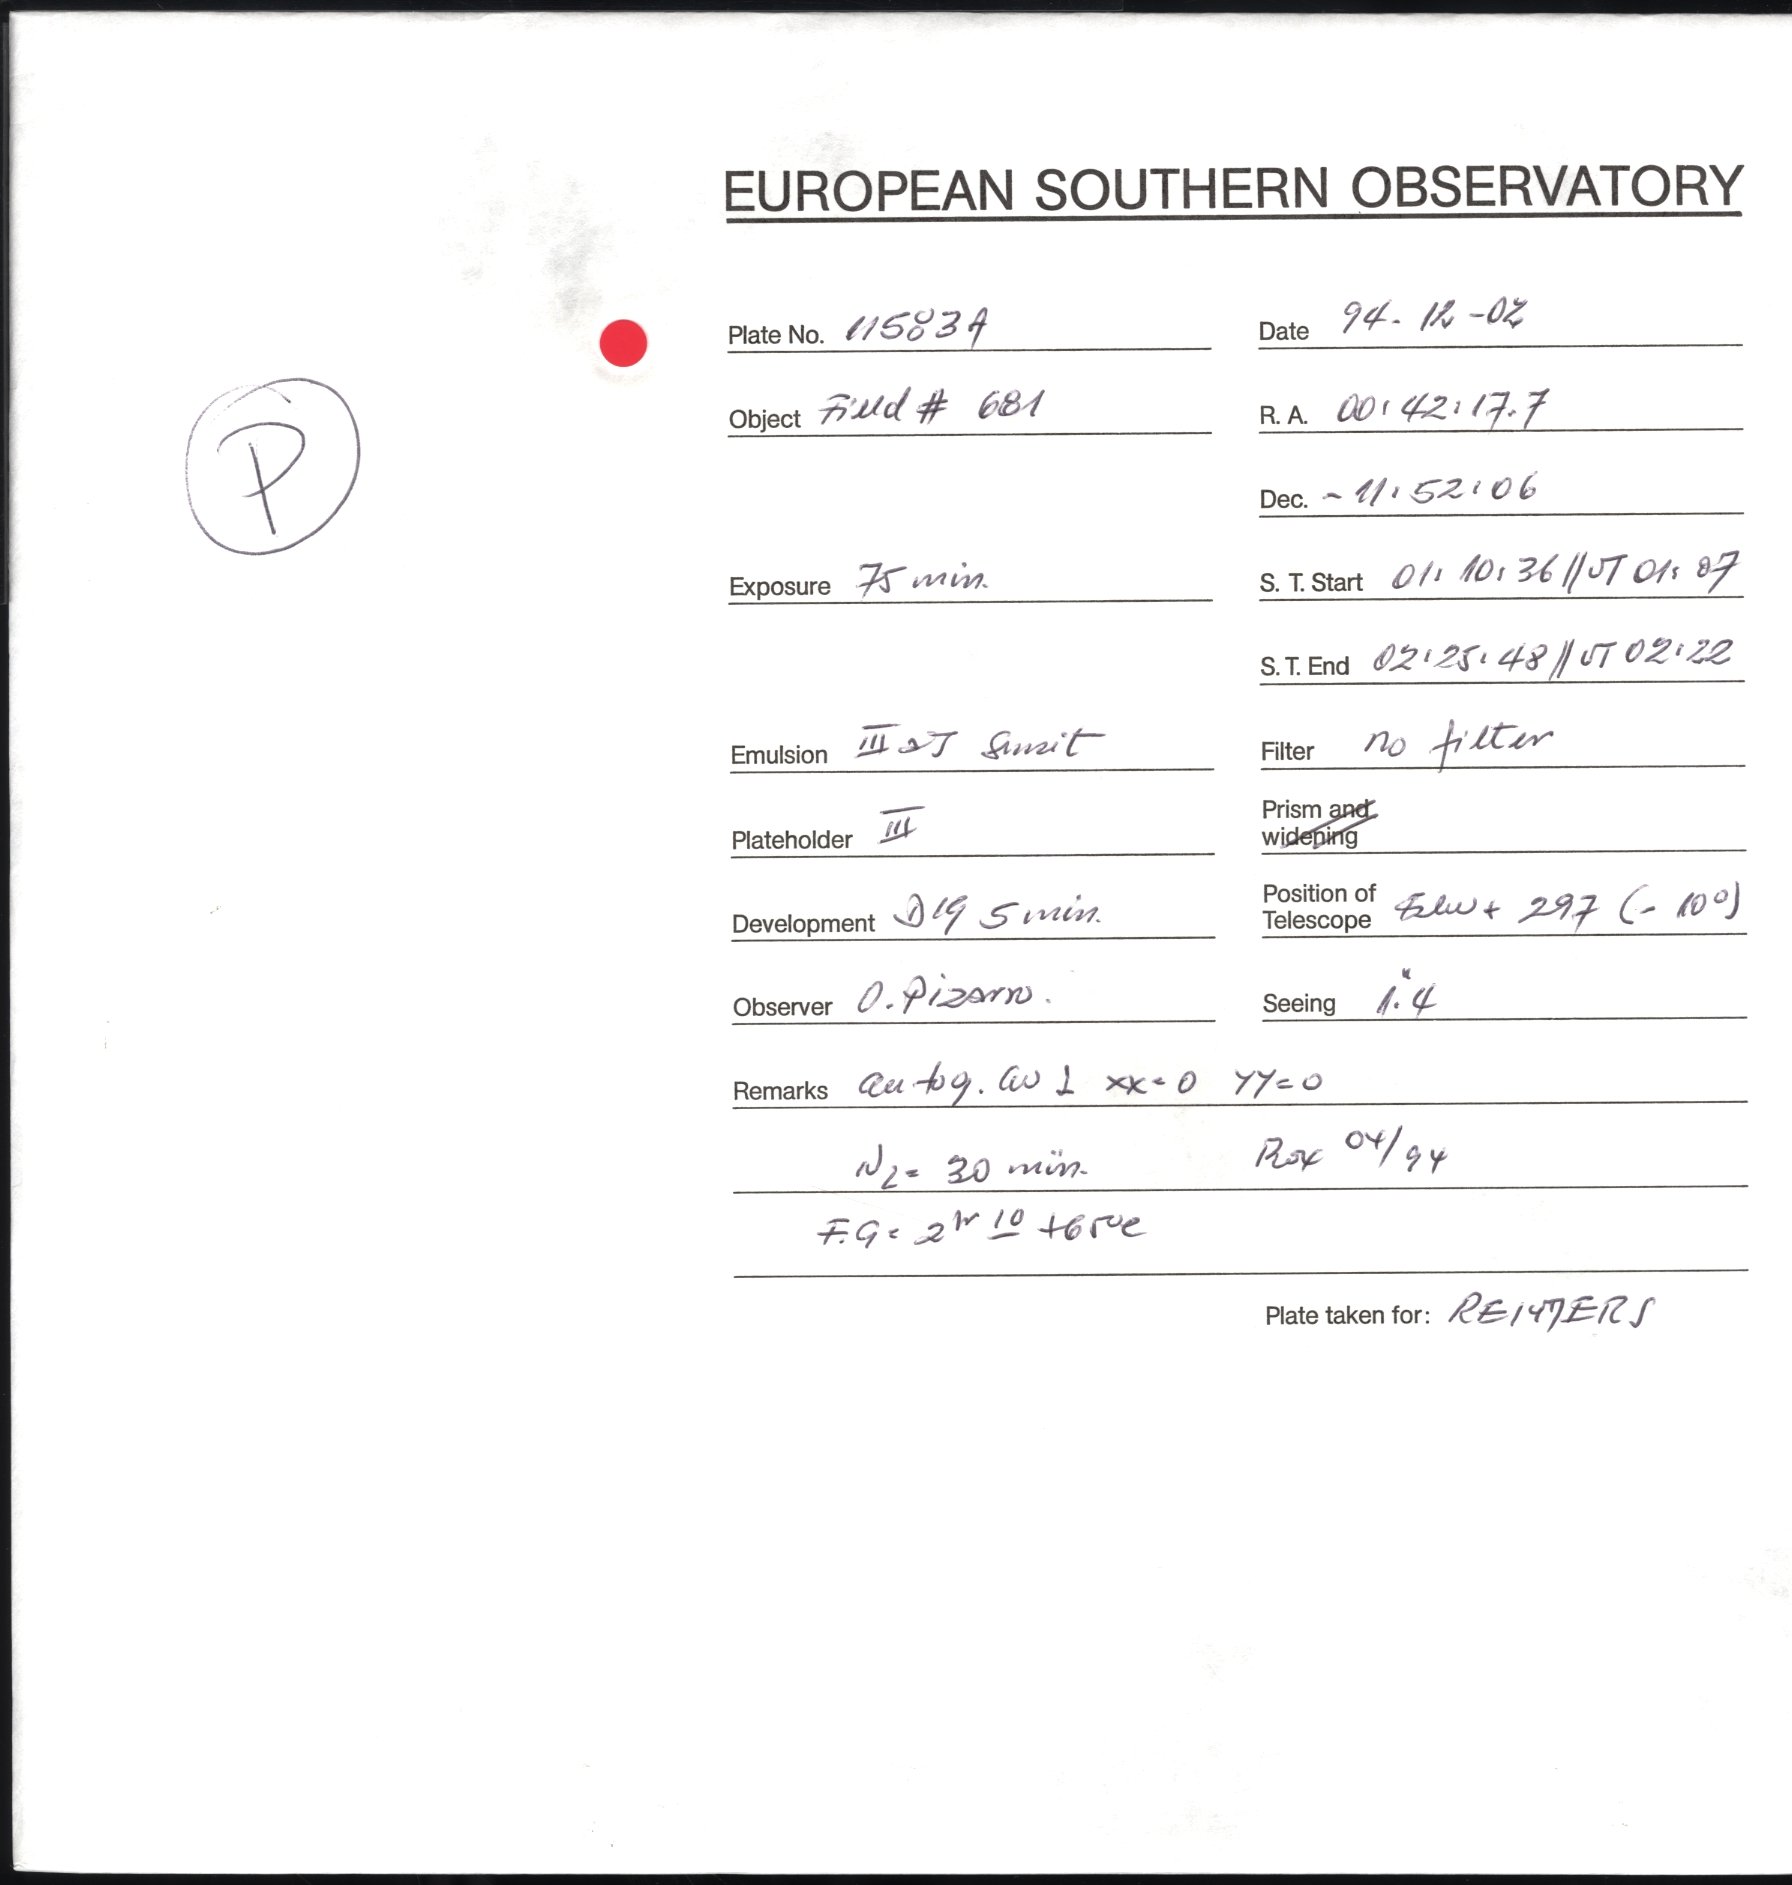 EUROPEAN SOUTHERN OBSERVATORY
Plate No. 11583A Date 94-12-02
Object Field # 681 R. A. 00:42:17.7
Dec. -11:52:06
Exposure 75 min. S. T. Start 01:10:36 // UT 01:07
S. T. End 02:25:48 // UT 02:22
Emulsion III aJ Filter no filter
Plateholder III Prism and widening
Development D19 5 min. Position of Telescope + 297 (- 10°)
Observer O. Pizarro. Seeing 1".4
Remarks autog. xx=0 YY=0
N2= 30 min. 04/94
F.G= 2hr 10
Plate taken for: REIMERS
P